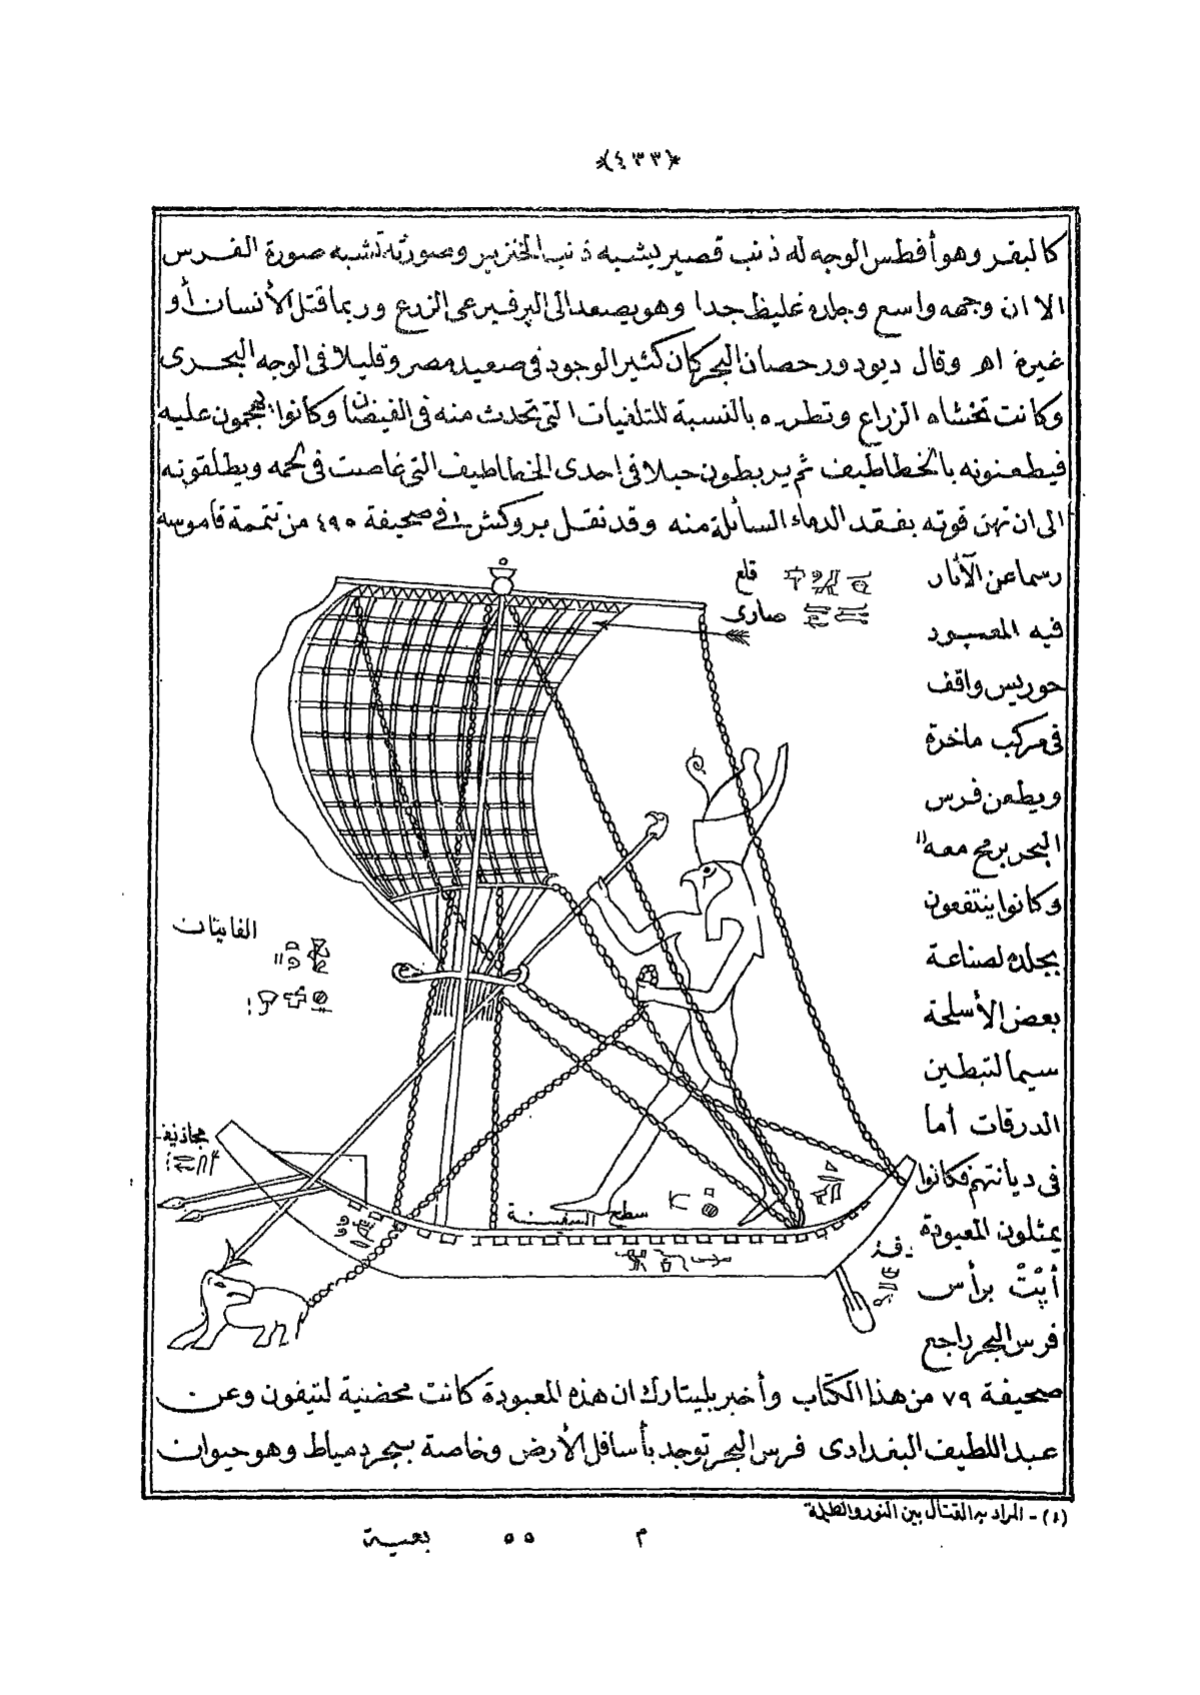 ﴿٤٣٣﴾
كالبقر وهو أفطس الوجه له ذنب قصير يشبه ذنب الخنزير وصورته تشبه صورة الفرس
الا ان وجهه واسع وجلده غليظ جدا وهو يصعد الى البر فيرعى الزرع وربما قتل الأنسان أو
غيره اه وقال ديودور حصان البحر كان كثير الوجود فى صعيد مصر وقليلا فى الوجه البحرى
وكانت تخشاه الزراع وتطرده بالنسبة للتلفيات التى تحدث منه فى الفيضان وكانوا يهجمون عليه
فيطعنونه بالخطاطيف ثم يربطون حبلا فى احدى الخطاطيف التى غاصت فى لحمه ويطلقونه
الى ان تهن قوته بفقد الدماء السائلة منه وقد نقل بروكش فى صحيفة ٤٩٥ من تتمة قاموسه
رسما عن الآثار
فيه المعبود
حوريس واقف
فى مركب ماخرة
ويطعن فرس
البحر برمح معه (١)
وكانوا ينتفعون
بجلده لصناعة
بعض الأسلحة
سيما لتبطين
الدرقات أما
فى ديانتهم فكانوا
يمثلون المعبودة
أپت برأس
فرس البحر راجع
قلع
صارى
الفايتات
مجاذيف
سطح السفينة
دفة
صحيفة ٧٩ من هذا الكتاب وأخبر بليتارك ان هذه المعبودة كانت محضنية لتيفون وعن
عبد اللطيف البغدادى فرس البحر توجد بأسافل الأرض وخاصة ببحر دمياط وهو حيوان
(١) - المراد به القتال بين النور والظلمة
م ٥٥ بغية